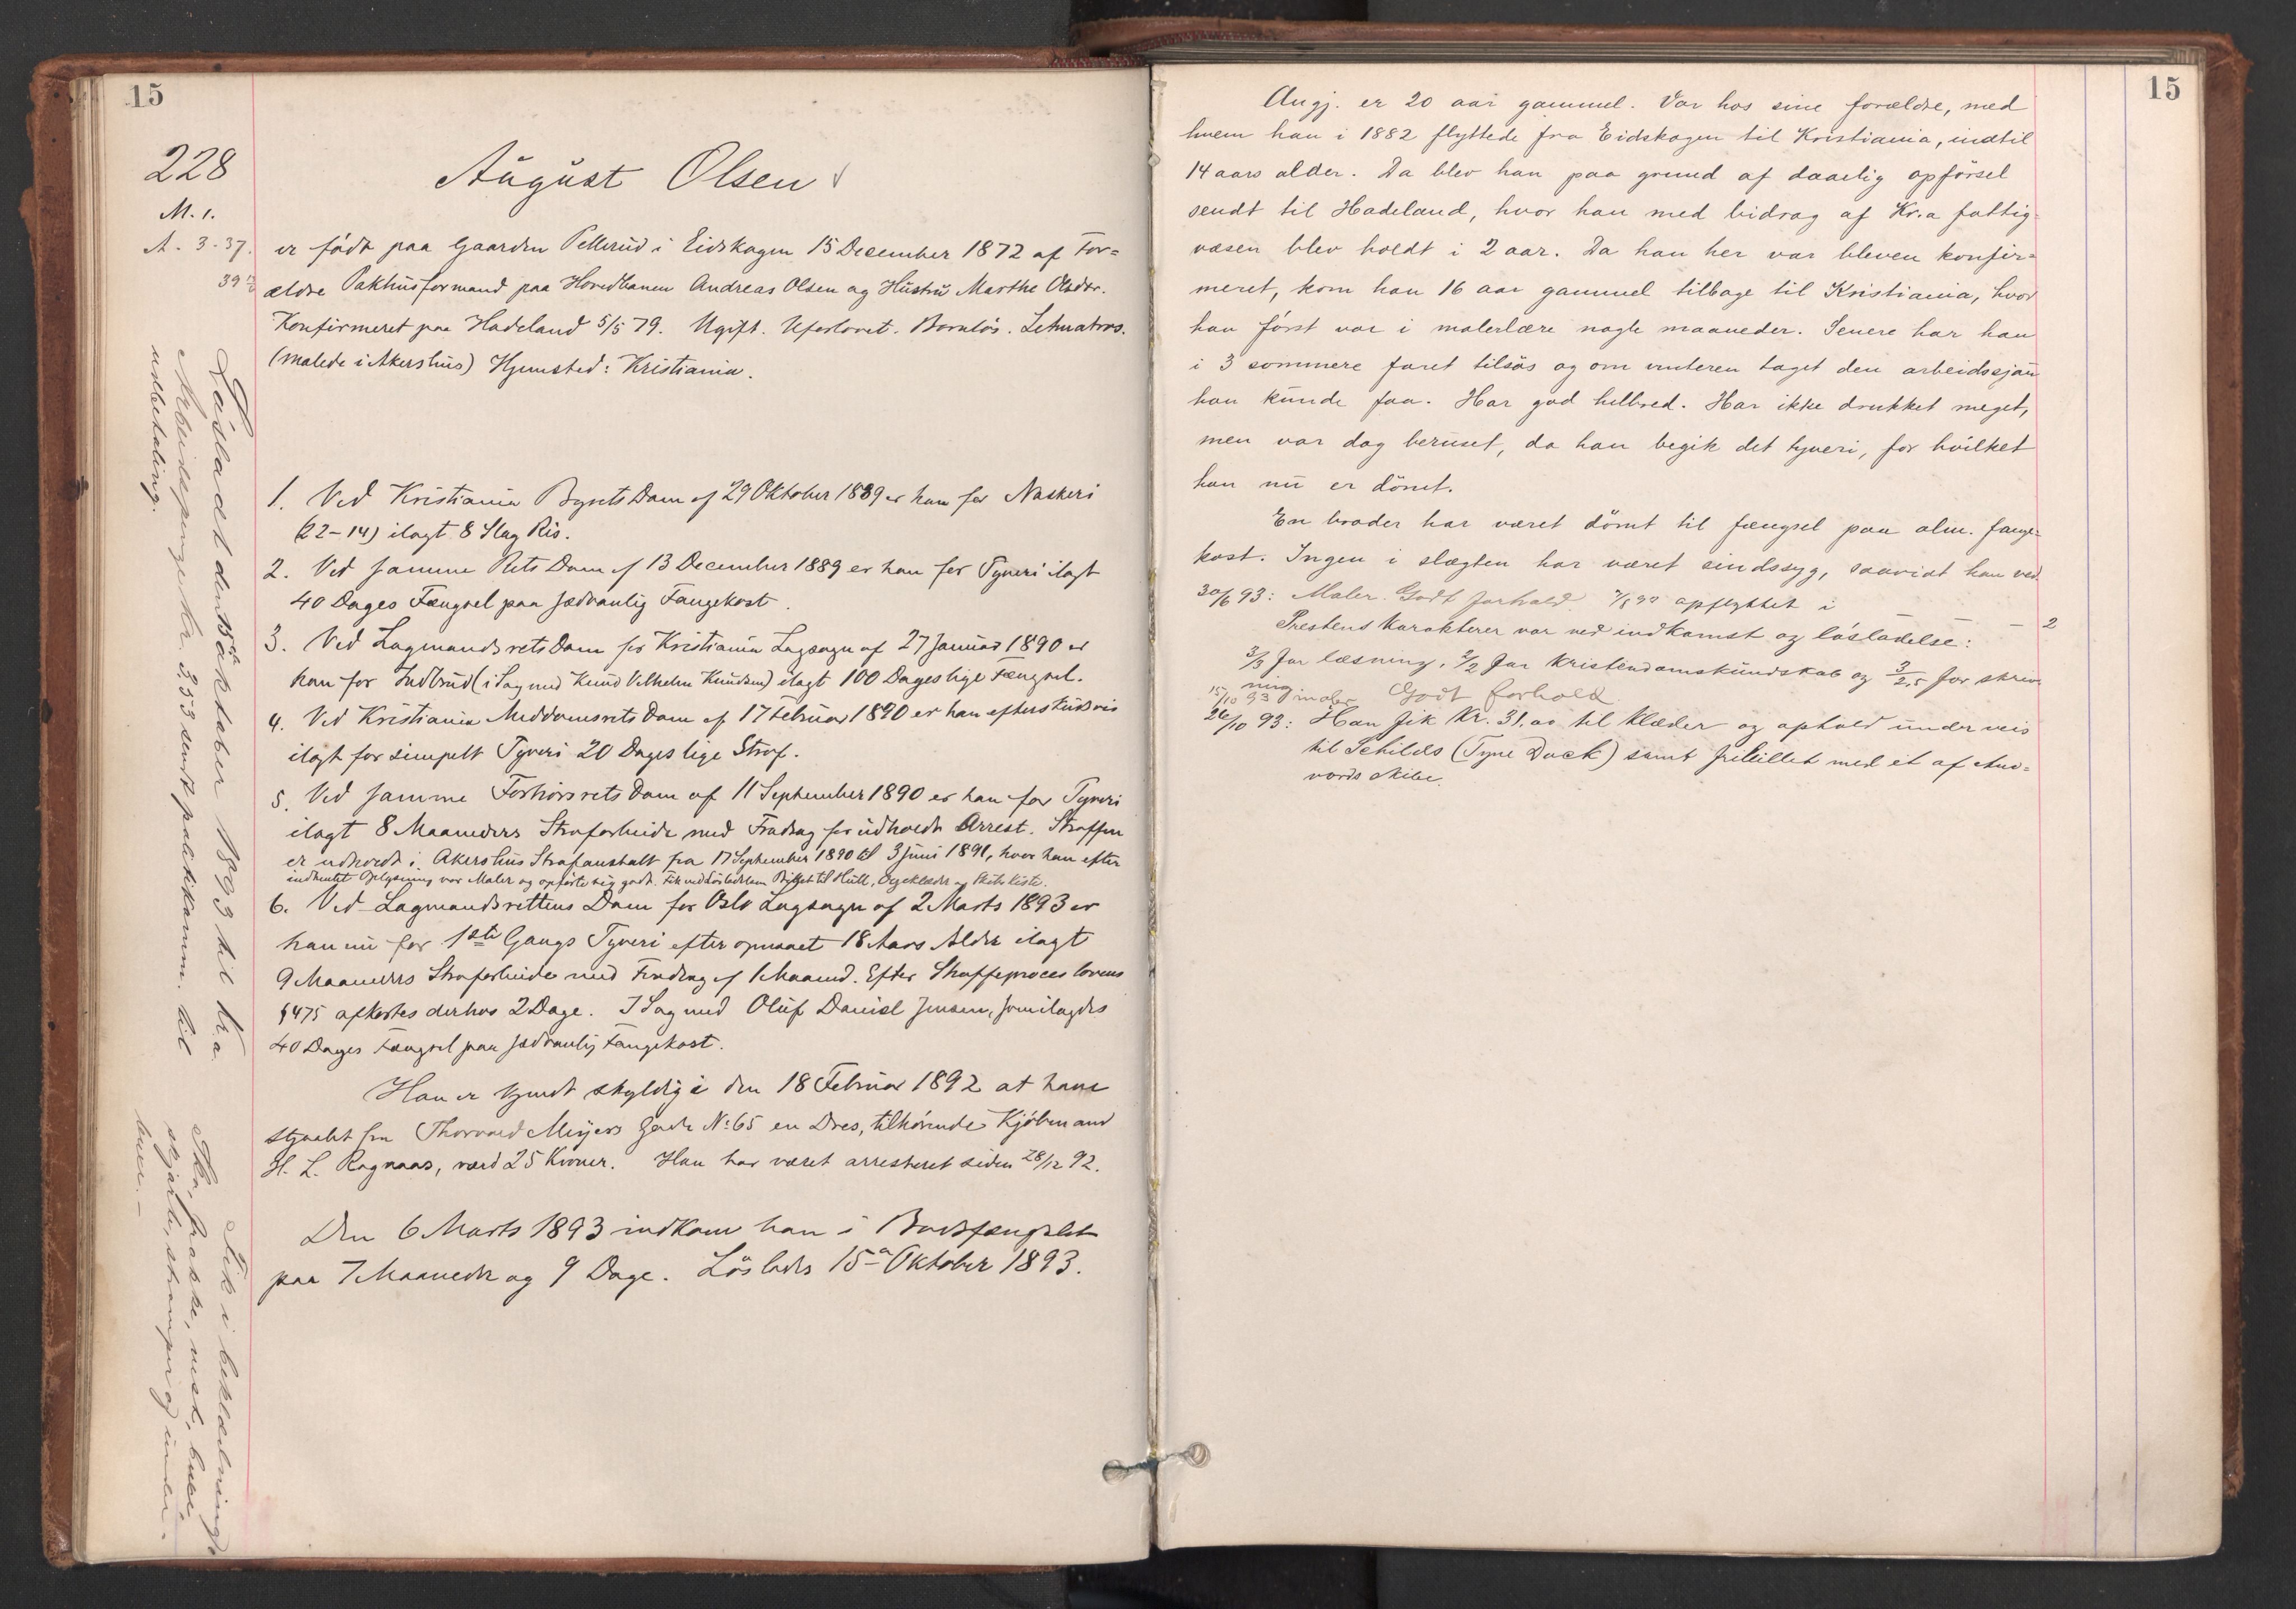 15
228
M. 1.
A. 3-37.
39
August Olsen
er födt paa Gaarden Pellerud i Eidskogen 15 December 1872 af For=
ældre Pakhusformand paa Hovedbanen Andreas Olsen og Hustru Marthe Olsdtr.
Konfirmeret paa Hadeland 5/5 79. Ugift. Uforlovet. Barnlös. Letmatros.
(malede i Akershus) Hjemsted: Kristiania.
1. Ved Kristiania Byrets Dom af 29 Oktober 1889 er han for Naskeri
(22-14) ilagt 8 Slag Ris.
2. Ved samme Rets Dom af 13 December 1889 er han for Tyveri ilagt
40 Dages Fængsel paa sædvanlig Fangekost.
3. Ved Lagmandsrets Dom for Kristiania Lagsogn af 27 Januar 1890 er
han for Indbrud (i Sag med Knud Vilhelm Knudsen) ilagt 100 Dages lige Fængsel.
4. Ved Kristiania Meddomsrets Dom af 17 Februar 1890 er han efterskudsvis
ilagt for simpelt Tyveri 20 Dages lige Straf.
5. Ved samme Forhörsrets Dom af 11 September 1890 er han for Tyveri
ilagt 8 Maaneders Strafarbeide med Fradrag for udholdt Arrest. Straffen
er udholdt i Akershus Strafanstalt fra 17 September 1890 til 3 Juni 1891, hvor han efter
indhentet Oplysning var Maler og opførte sig godt. Fik ved Lösladelsen Billet til Hull, Oljeklæder og Skibskiste.
6. Ved Lagmandsrettens Dom for Oslo Lagsogn af 2 Marts 1893 er
han nu for 1ste Gangs Tyveri efter opnaaet 18 Aars Alder ilagt
9 Maaneders Strafarbeide med Fradrag af 1 Maaned. Efter Straffeproceslovens
§475 afkortes derhos 2 Dage. I Sag med Oluf Daniel Jensen, som ilagdes
40 Dages Fængsel paa sædvanlig Fangekost.
Han er kjendt skyldig i den 18 Februar 1892 at have
stjaalet fra Thorvald Meyers Gade No 65 en Dres, tilhörende Kjöbmand
H. L. Ragnaas, værd 25 Kroner. Han har været arresteret siden 28/12 92.
Den 6 Marts 1893 indkom han i Bodsfængslet
paa 7 Maaneder og 9 Dage. Löslades 15de Oktober 1893.
Lösladt den 15de oktober 1893 til Kr.a.
Arbeidspenge kr. 3,53 sendt politikamm. til
udbetaling.
Fik i beklædning
Sko, frakke, vest, buxe,
skjorte, strömper og under-
buxe. -
15
Angj. er 20 aar gammel. Var hos sine forældre, med
hvem han i 1882 flyttede fra Eidskogen til Kristiania, indtil
14 aars alder. Da blev han paa grund af daarlig opförsel
sendt til Hadeland, hvor han med bidrag af Kr.a fattig=
væsen blev holdt i 2 aar. Da han her var bleven konfir=
meret, kom han 16 aar gammel tilbage til Kristiania, hvor
han först var i malerlære nogle maaneder. Senere har han
i 3 sommere faret tilsös og om vinteren taget den arbeidssjau
han kunde faa. Har god helbred. Har ikke drukket meget,
men var dog beruset, da han begik det tyveri, for hvilket
han nu er dömt.
En broder har været dömt til fængsel paa alm. fange=
kost. Ingen i slægten har været sindssyg, saavidt han ved.
30/6 93: Maler. Godt forhold. opflyttet i — — 2
Prestens karakterer var ved indkomst og lösladelse:
3/3 for læsning, 2/2 for kristendomskundskab og 3/2,5 for skriv-
ning
15/10 93 maler Godt forhold
26/10 93: Han fik Kr. 31.00 til klæder og ophold underveis
til Schilds (Tyne Dock) samt fribillet med et af
vords skibe.